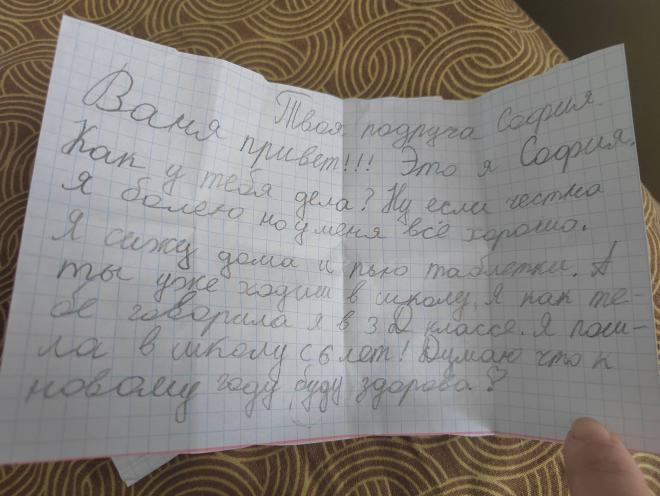 Твоя подруга София.
Ваня привет!!! Это я София.
Как у тебя дела? Ну если честна
я болею но у меня всё хорошо.
Я сижу дома и пью таблетки. А
ты уже ходиш в школу, я как те-
бе говорила я в 3 Д классе. Я пош-
ла в школу с 6 лет! Думаю что к
новому году буду здорова?